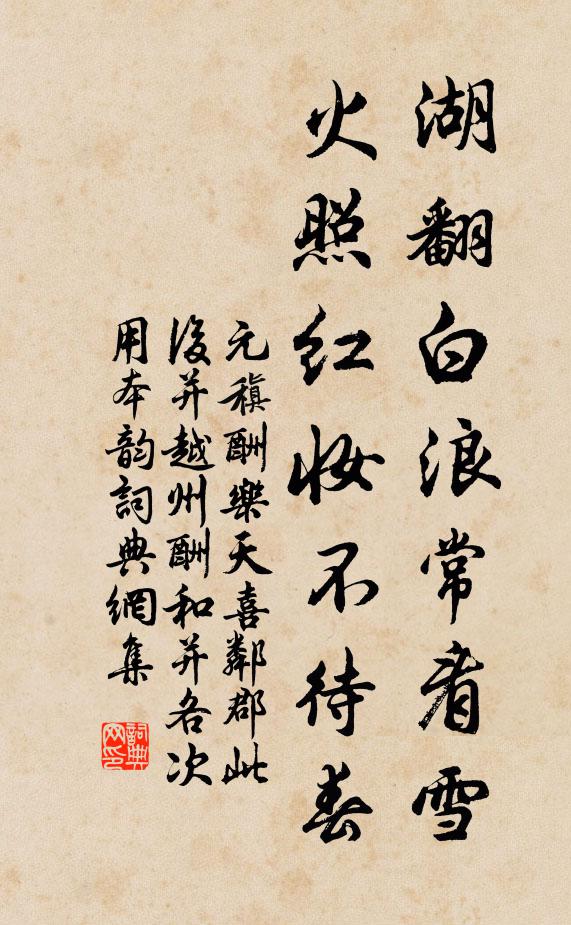 湖翻白浪常看雪
火照红妆不待春
元稹酬樂天喜鄰郡此
後并越州酬和并各次
用本韵詞典網集
詞典网印